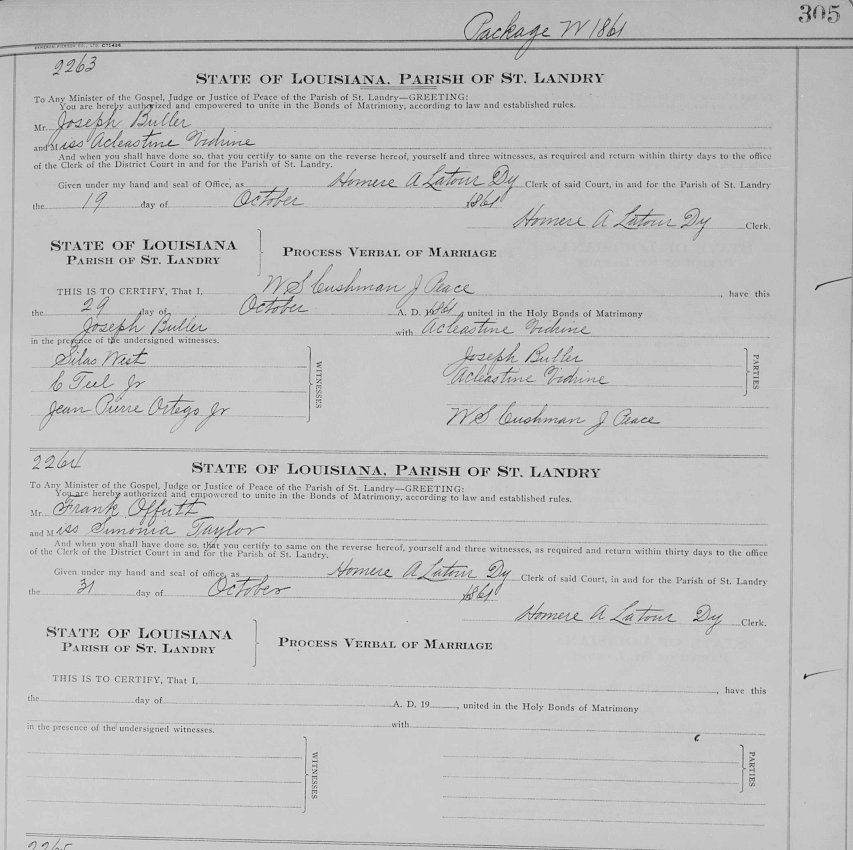 305
Package W 1861
2263
STATE OF LOUISIANA, PARISH OF ST. LANDRY
To Any Minister of the Gospel, Judge or Justice of Peace of the Parish of St. Landry—GREETING:
You are hereby authorized and empowered to unite in the Bonds of Matrimony, according to law and established rules.
Mr. Joseph Buller
and Miss Acleastine Vidrine
And when you shall have done so, that you certify to same on the reverse hereof, yourself and three witnesses, as required and return within thirty days to the office
of the Clerk of the District Court in and for the Parish of St. Landry.
Given under my hand and seal of Office, as Homere A Latour Dy Clerk of said Court, in and for the Parish of St. Landry
the 19 day of October 1861
Homere A Latour Dy Clerk.
STATE OF LOUISIANA
PARISH OF ST. LANDRY
PROCESS VERBAL OF MARRIAGE
THIS IS TO CERTIFY, That I, W S Cushman J Peace, have this
the 29 day of October A. D. 1861, united in the Holy Bonds of Matrimony
Joseph Buller with Acleastine Vidrine
in the presence of the undersigned witnesses.
Silas West
C Teel Jr
Jean Pierre Ortego Jr
WITNESSES
Joseph Buller
Acleastine Vidrine
W S Cushman J Peace
PARTIES
2264
STATE OF LOUISIANA, PARISH OF ST. LANDRY
To Any Minister of the Gospel, Judge or Justice of Peace of the Parish of St. Landry—GREETING:
You are hereby authorized and empowered to unite in the Bonds of Matrimony, according to law and established rules.
Mr. Frank Offutt
and Miss Simonia Taylor
And when you shall have done so, that you certify to same on the reverse hereof, yourself and three witnesses, as required and return within thirty days to the office
of the Clerk of the District Court in and for the Parish of St. Landry.
Given under my hand and seal of office, as Homere A Latour Dy Clerk of said Court, in and for the Parish of St. Landry
the 31 day of October 1861
Homere A Latour Dy Clerk.
STATE OF LOUISIANA
PARISH OF ST. LANDRY
PROCESS VERBAL OF MARRIAGE
THIS IS TO CERTIFY, That I, , have this
the day of A. D. 19 , united in the Holy Bonds of Matrimony
with
in the presence of the undersigned witnesses.
WITNESSES
PARTIES
2265